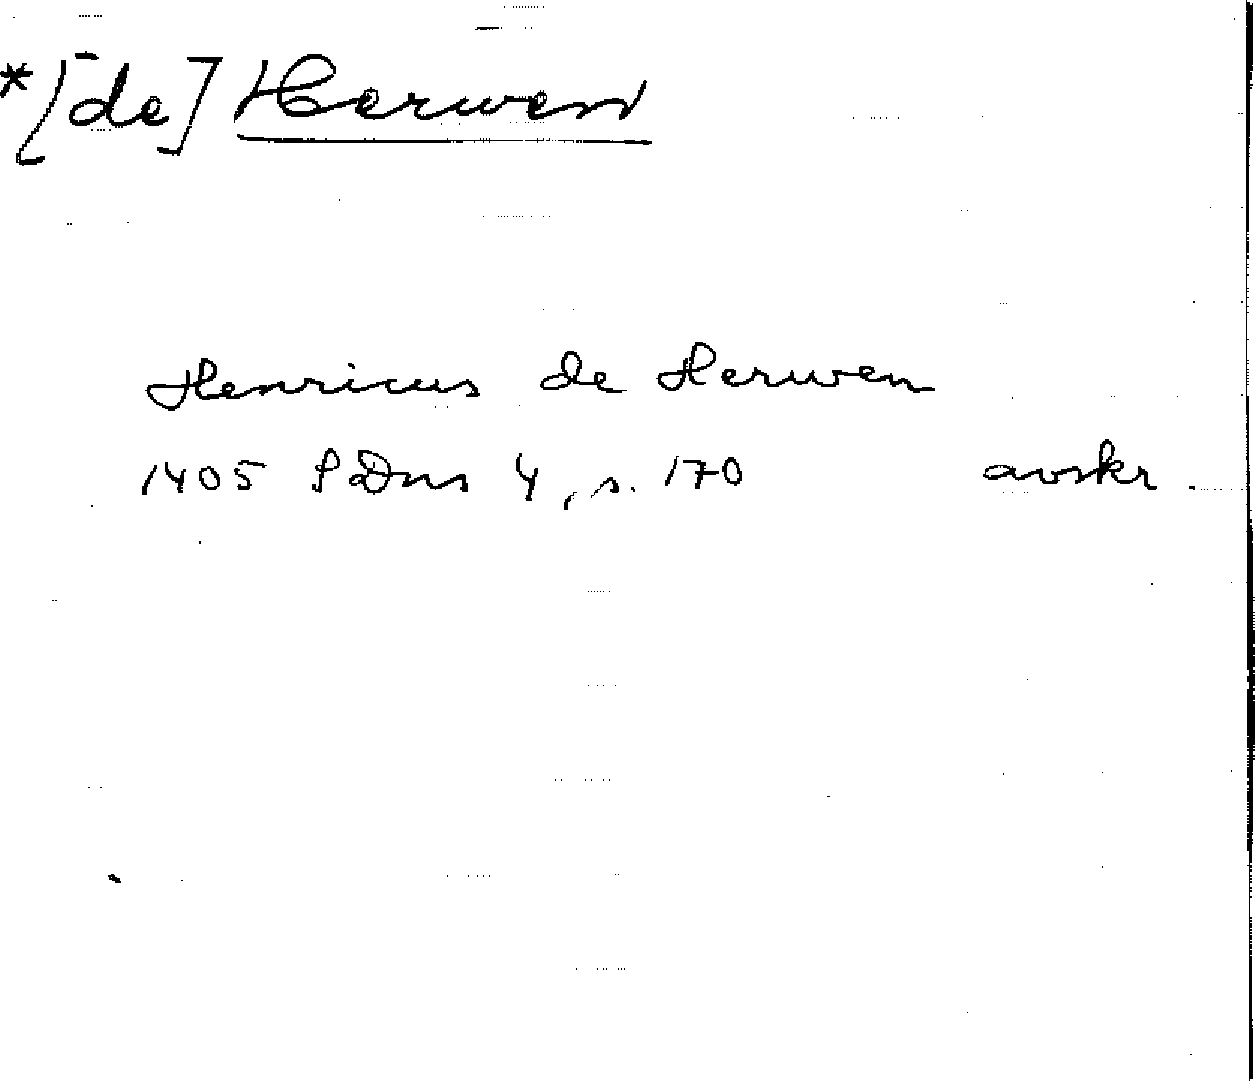 *[de] Herwen
Henricus de Herwen
1405 SDns 4, s. 170 avskr.